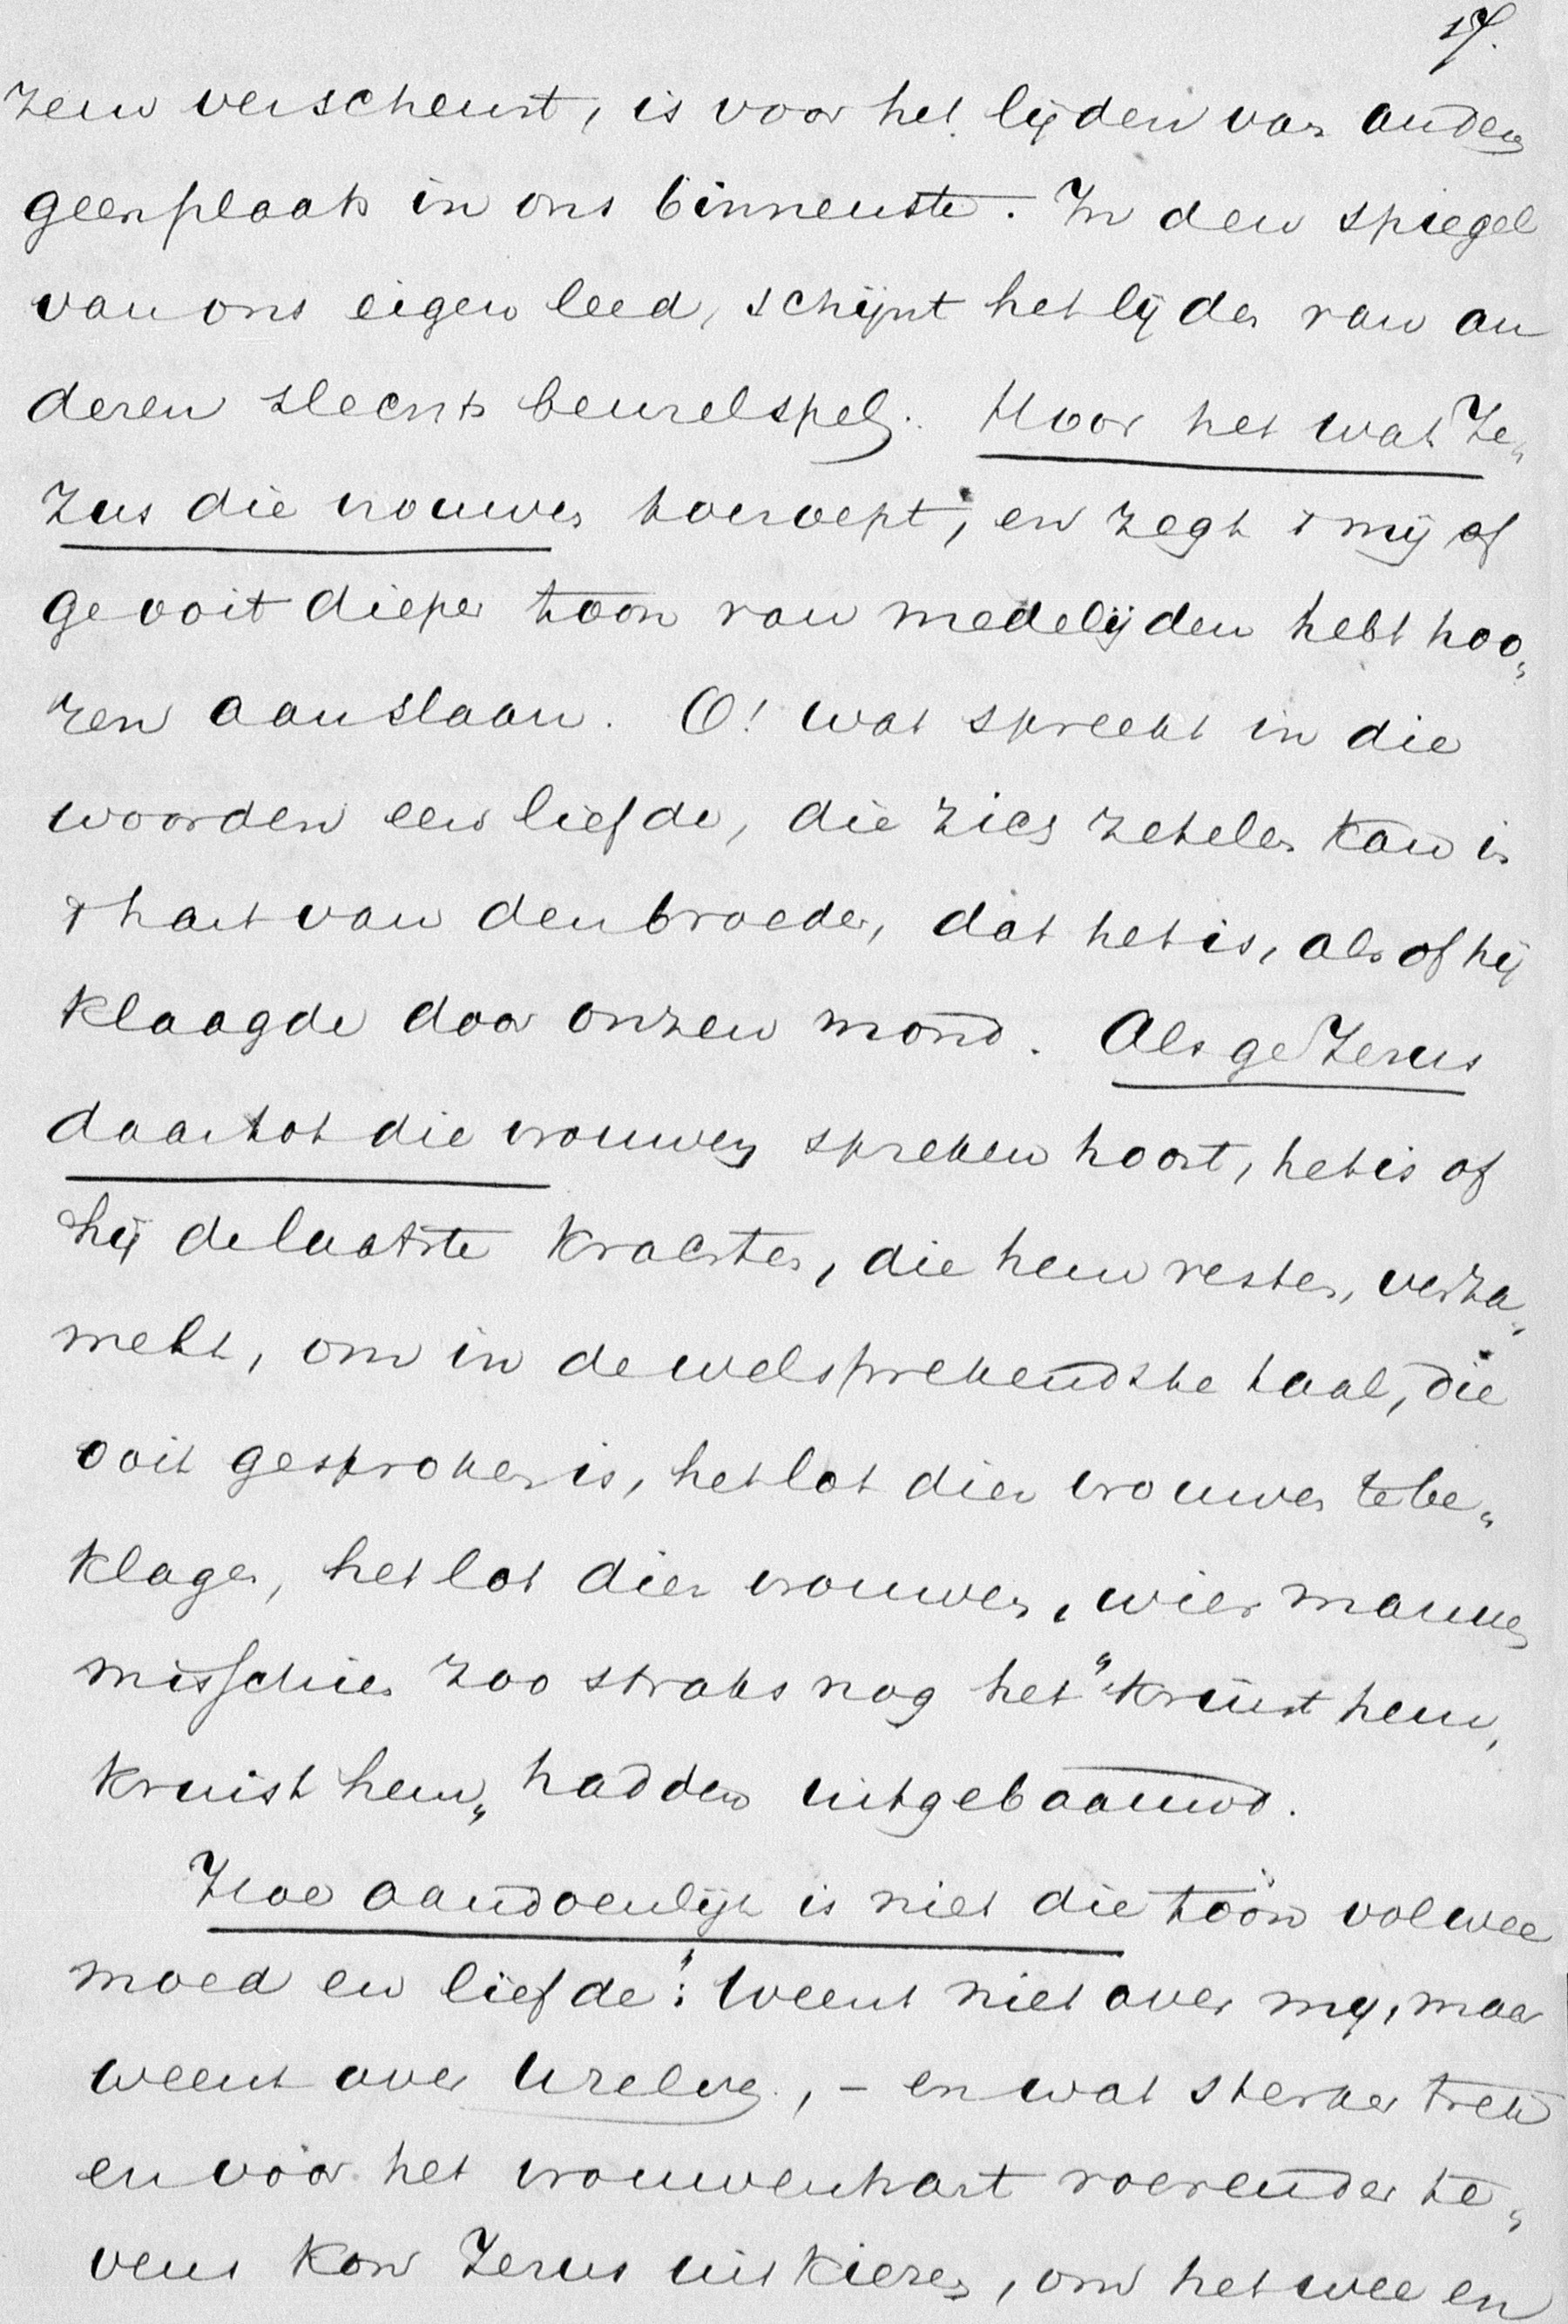 17.
zen verscheurt, is voor het lijden van anden
geen plaats in ons binnenste. In den spiegel
van ons eigen leed, schijnt het lijden van an
deren slechts beuzelspel. Hoor het wat Je„
zus die vrouwen toeroept, en zegt 't mij of
ge ooit dieper toon van medelijden hebt hoo„
ren aanslaan. O! wat spreekt in die
woorden een liefde, die zich zetelen kan in
't hart van den broeder, dat het is, als of hij
klaagde door onzen mond. Als ge Jezus
daar tot die vrouwen spreken hoort, het is of
hij de laatste krachten, die hem resten, verza„
melt, om in de welsprekendste taal, die
ooit gesproken is, het lot dier vrouwen te be„
klagen, het lot dier vrouwen, wier mannen
misschien zoo straks nog het "kruist hem,
kruist hem„ hadden uitgebaauwd.
Hoe aandoenlijk is niet die toon vol wee
moed en liefde: Weent niet over mij, maar
weent over Uzelve, – en wat sterker trek
en voor het vrouwenhart roerender te„
vens kon Jezus uitkiezen, om het wee en